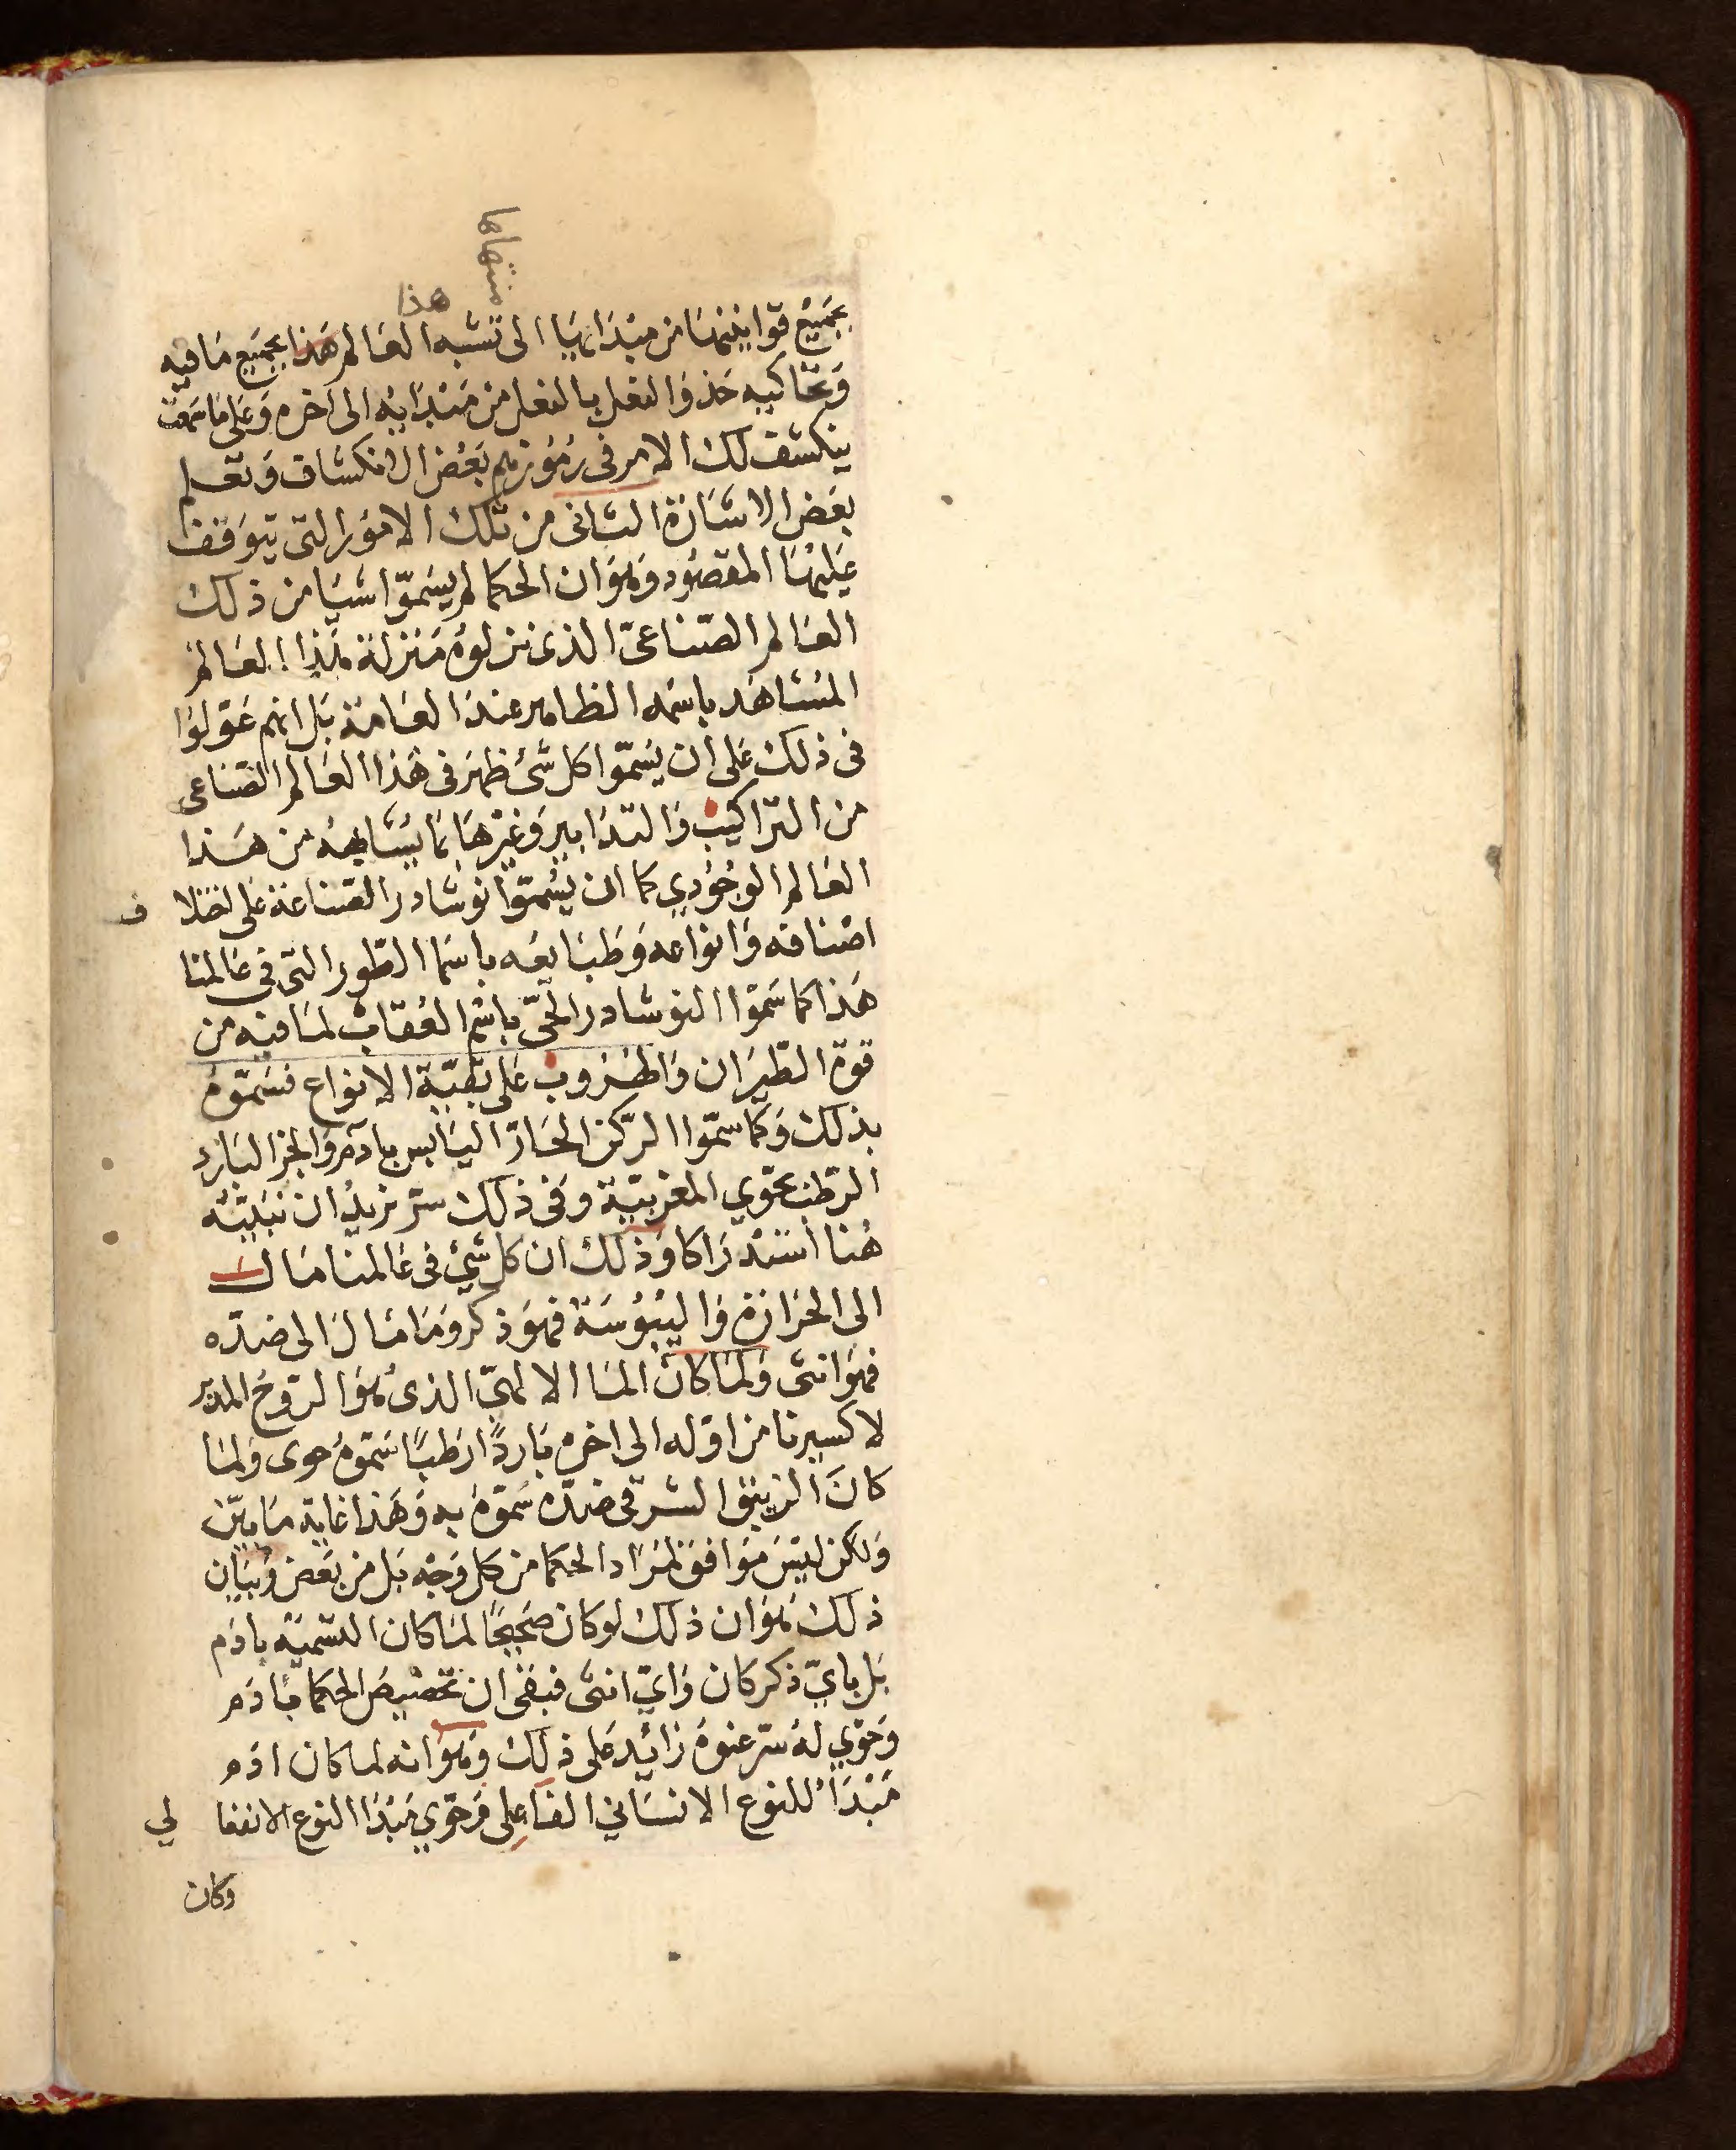 منتهاها
هذا
بجميع قوانينها من مبدايها الى تشبه العالم هذا بجميع ما فيه
وتحاكيه حذو النعل بالنعل من مبدايه الى اخره وعلى ما سمعت
ينكشف لك الامر فى رموزهم بعض الانكشاف وتعلم
بعض الاشارة الثانى من تلك الامور التى يتوقف
عليها المقصود وهو ان الحكما لم يسموا شيا من ذلك
العالم الصناعىّ الذى نزلوه منزلة هذا العالم
المشاهد باسمه الظاهر عند العامة بل انهم عولوا
فى ذلك على ان يسموا كل شئ ظهر فى هذا العالم الصناعى
من التراكيب والتدابير وغيرها بما يشابهه من هذا
العالم الوجودي كما ان يسموا نوشادر الصناعة على اختلا ف
اصنافه وانواعه وطبايعه باسما الطيور التى في عالمنا
هذا كما سموا النوشادر الحىّ باسم العقاب لما فيه من
قوة الطيران والهروب على بقية الانواع فسموه
بذلك وكما سموا الركن الحارّ اليابس بادم والجز البارد
الرطب بحوي المغربية وفى ذلك سرّ نريد ان نبينه
هنا استدراكا وذلك ان كل شئ فى عالمنا مال
الى الحرارة واليبوسة فهو ذكر وما مال الى ضده
فهو انثى ولما كان الما الالهىّ الذى هو الروح المدبر
لاكسيرنا من اوله الى اخره باردًا رطبًا سموه حوى ولما
كان الزيبق الشرقى ضده سموه به وهذا غاية ما يبين
ولكن ليس موافق لمراد الحكما من كل وجه بل من بعض وبيان
ذلك هو ان ذلك لو كان صحيحًا لما كان التسميه بادم
بل بايّ ذكر كان وايّ انثى فبقى ان تخصيص الحكما بادم
وحوي له سرّ عنوه زائد على ذلك وهو انه لما كان ادم
مبدأ للنوع الانسانى الفاعلى وحوي مبدا النوع الانفعا لي
وكان